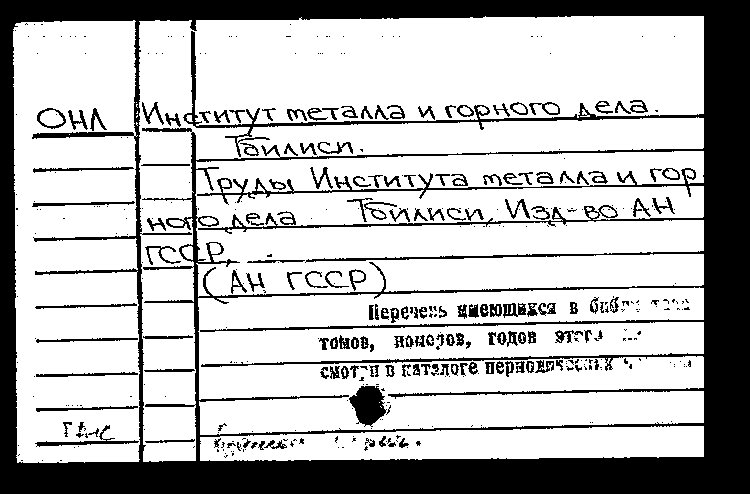 ОНЛ Институт металла и горного дела.
Тбилиси.
Труды Института металла и гор-
ного дела Тбилиси, Изд-во АН
ГССР,
(АН ГССР)
Перечень имеющихся в
томов, номеров, годов этого
смотри в каталоге периодических